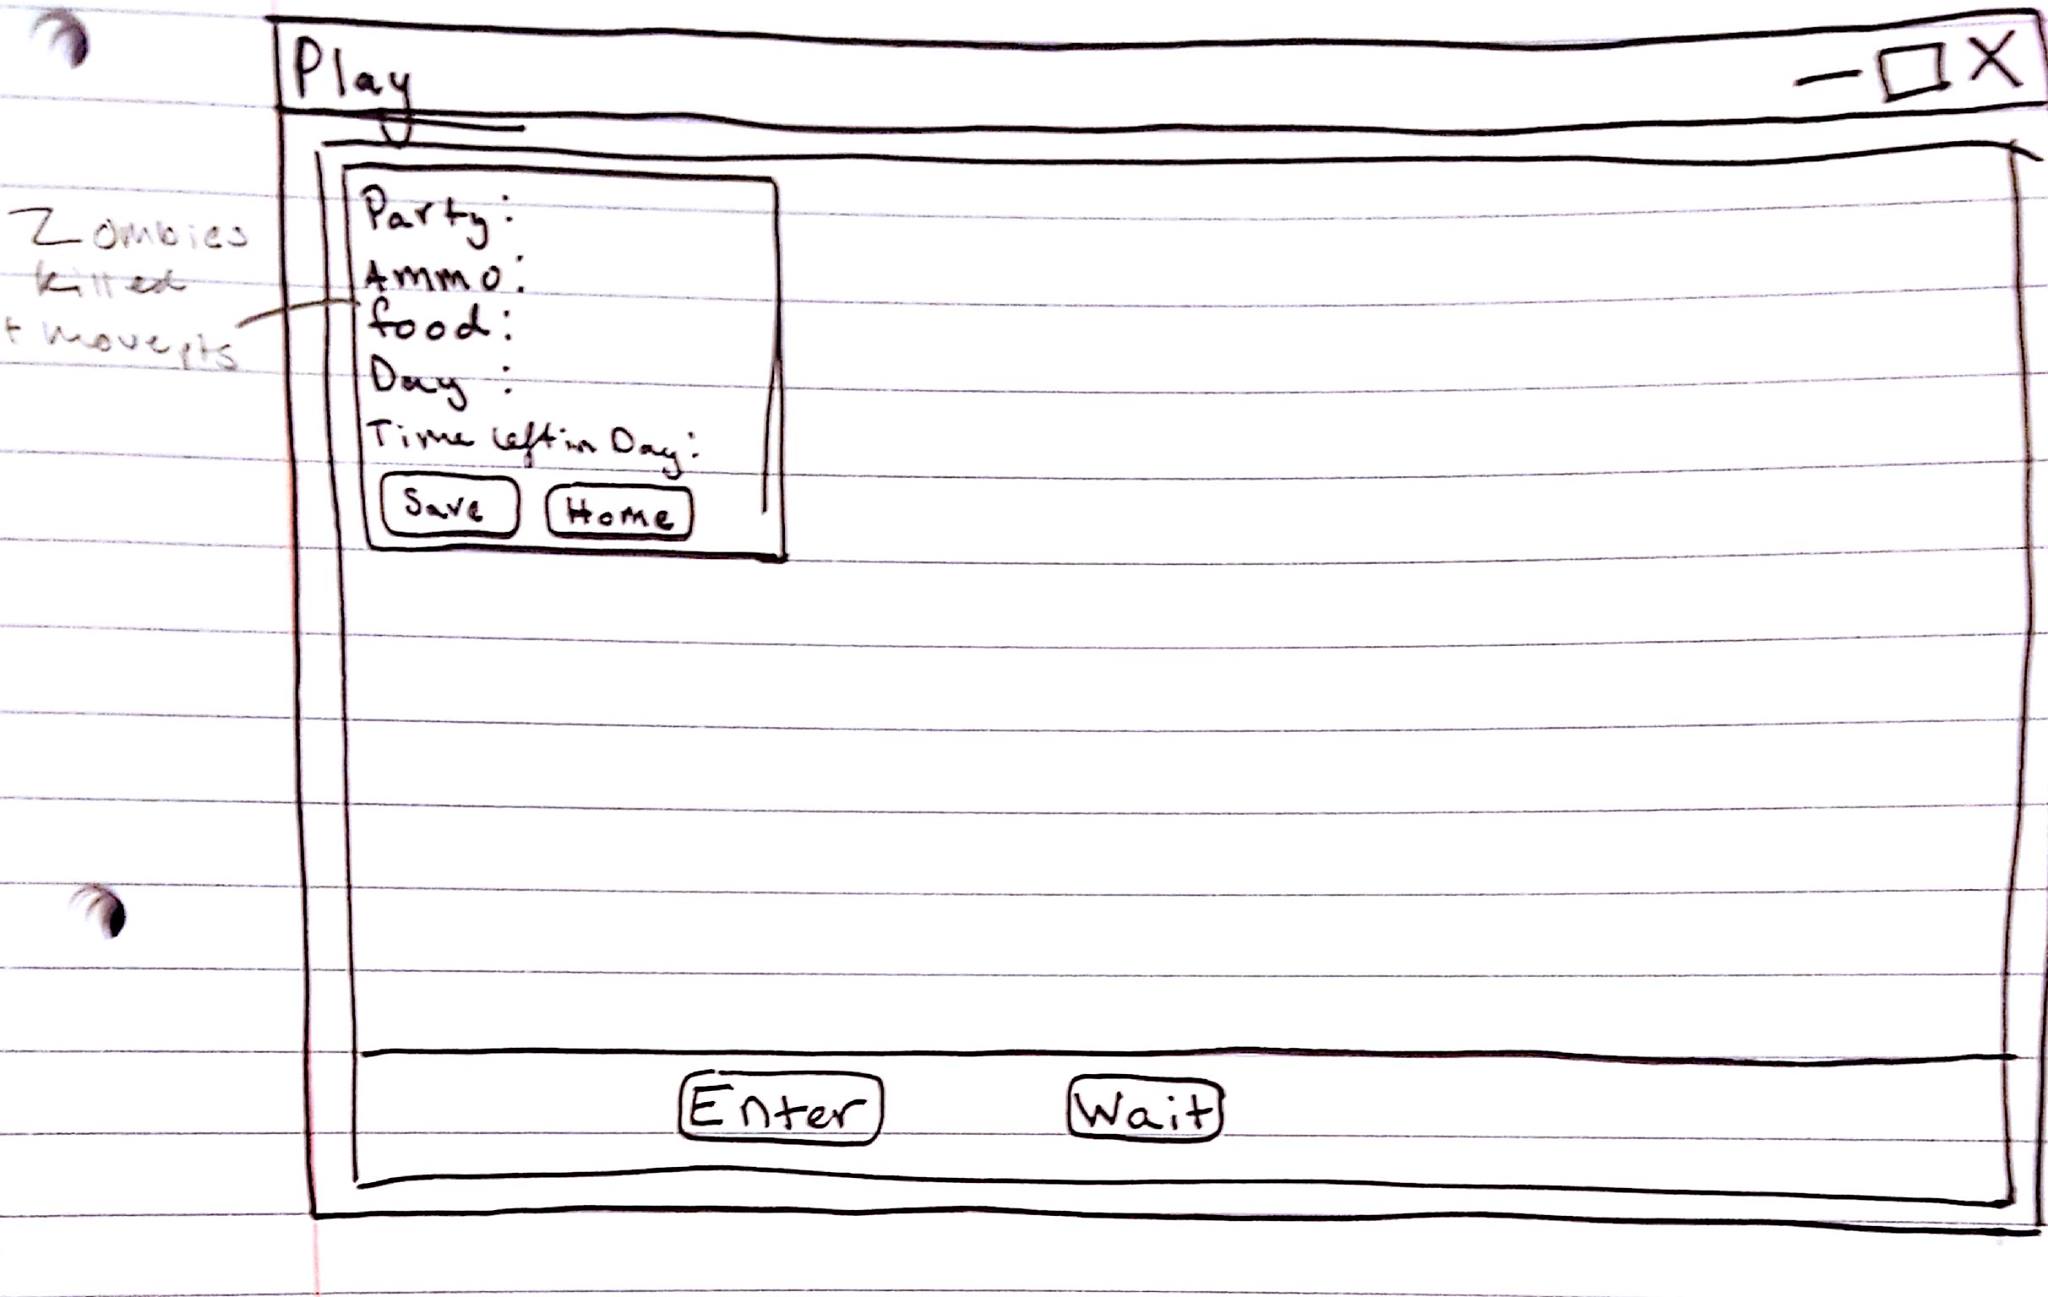 Play
— □ X
Zombies
killed
+ movepts
Party:
Ammo:
food:
Day :
Time left in Day:
Save Home
Enter Wait